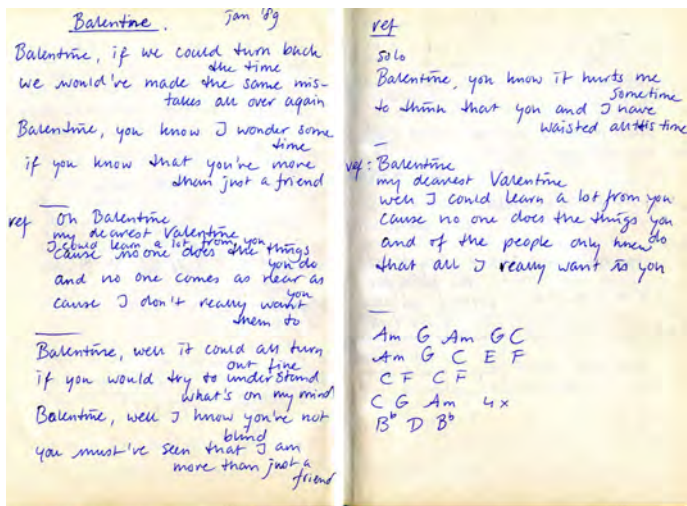 Balentine. jan '89
Balentine, if we could turn back
the time
we would've made the same mis-
takes all over again
Balentine, you know I wonder some
time
if you know that you're more
than just a friend
ref oh Balentine
my dearest Valentine
I could learn a lot from you
cause no one does the things
you do
and no one comes as near as
you
cause I don't really want
them to
Balentine, well it could all turn
out fine
if you would try to understand
what's on my mind
Balentine, well I know you're not
blind
you must've seen that I am
more than just a
friend
ref
solo
Balentine, you know it hurts me
sometime
to think that you and I have
waisted all this time
ref: Balentine
my dearest Valentine
well I could learn a lot from you
cause no one does the things you
do
and of the people only knew
that all I really want is you
Am G Am G C
Am G C E F
C F C F
C G Am 4x
Bb D Bb